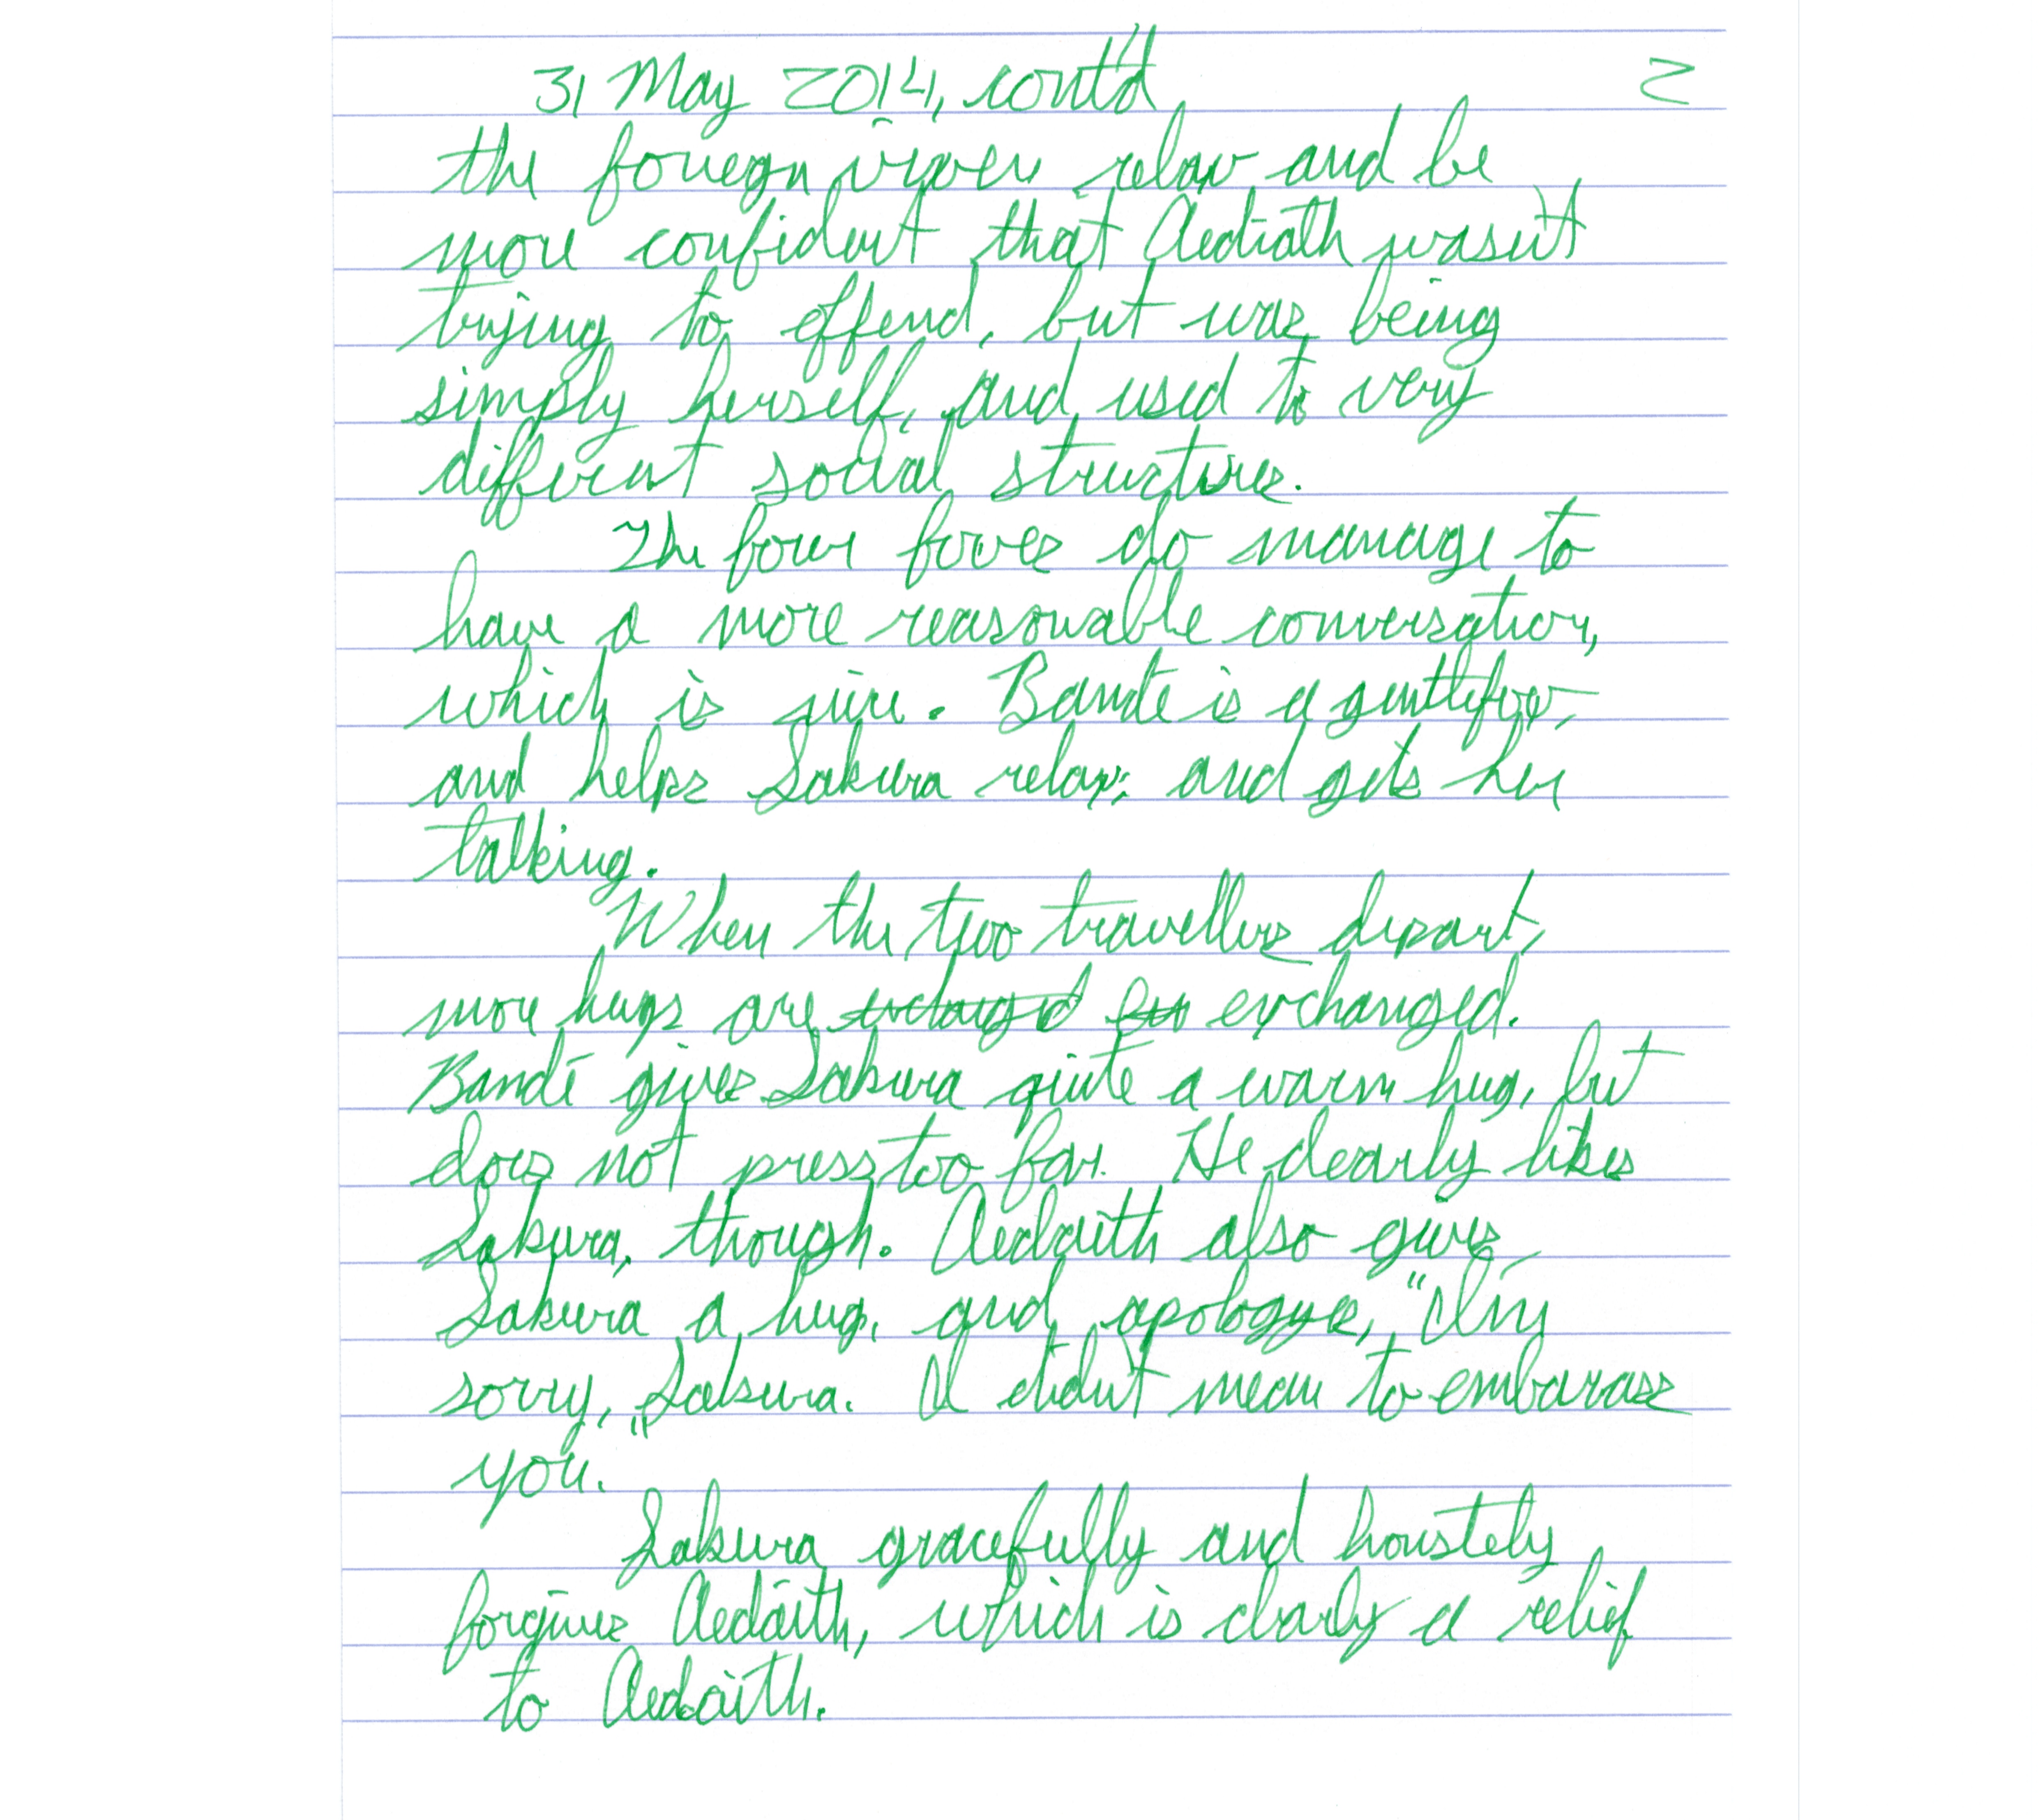 31 May 2014, cont'd 2
the foriegn vixen relax and be
more confident that Aediath wasn't
trying to offend, but was being
simply herself, and used to very
different social structures.
The four foxes do manage to
have a more reasonable conversation,
which is nice. Bandé is a gentlefox,
and helps Sakura relax, and gets her
talking.
When the two travellers depart,
more hugs are exchanged.
Bandé gives Sakura quite a warm hug, but
does not press too far. He clearly likes
Sakura, though. Aedaith also gives
Sakura a hug, and apologyes, "I'm
sorry, Sakura. I didn't mean to embarass
you."
Sakura gracefully and honstely
forgives Aedaith, which is clearly a relief
to Aedaith.